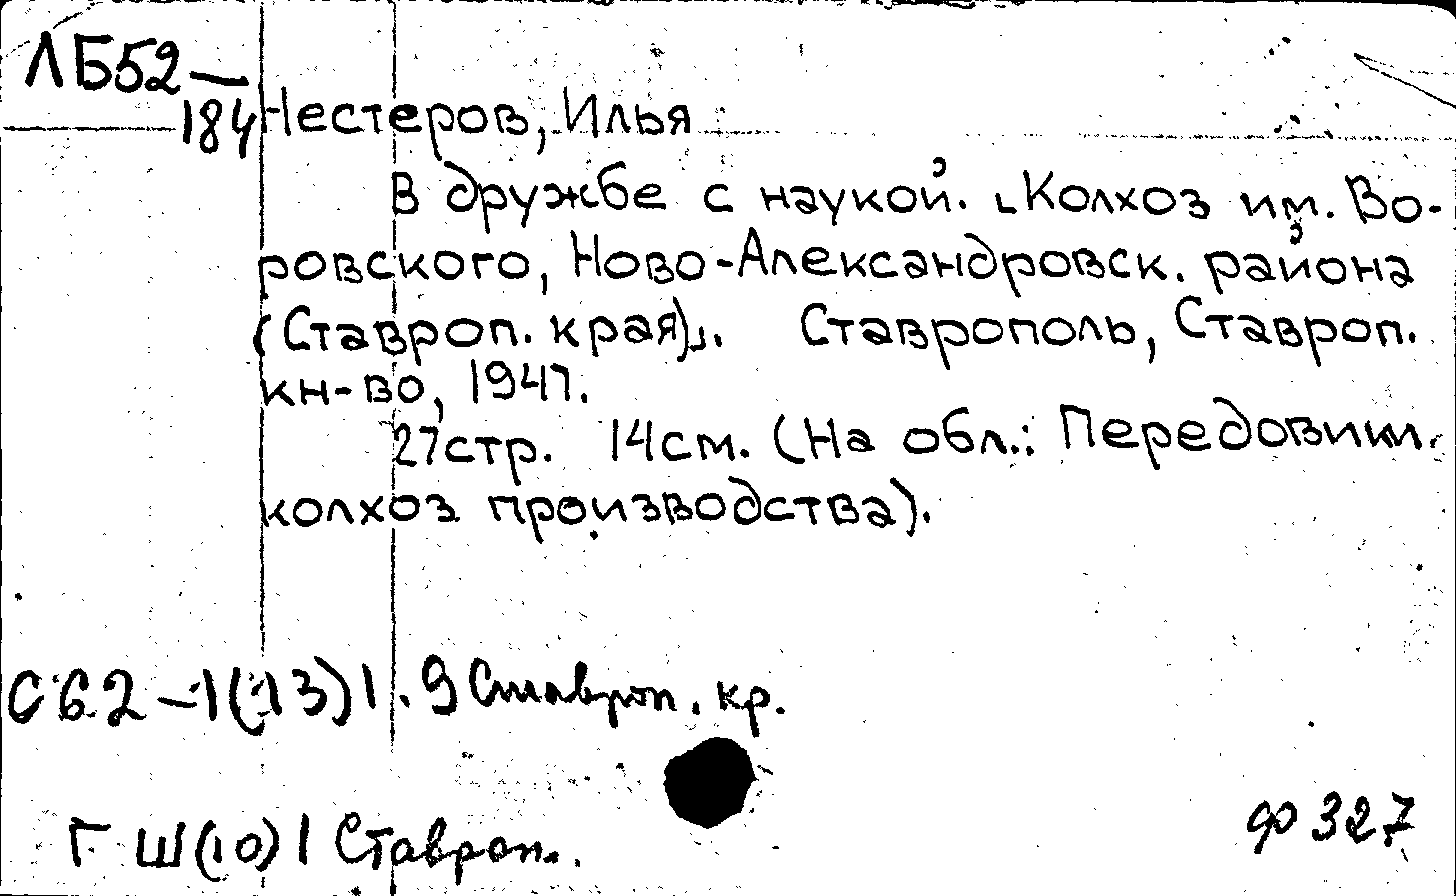 ЛБ52—
184 Нестеров, Илья
В дружбе с наукой. [Колхоз им. Во-
ровского, Ново-Александровск. района
(Ставроп. края)]. Ставрополь, Ставроп.
кн-во, 1947.
27стр. 14см. (На обл.: Передовики
колхоз производства).
С62-1(13)1.9 Ставроп. кр.
Г Ш(10)1 Ставроп.
ф 327